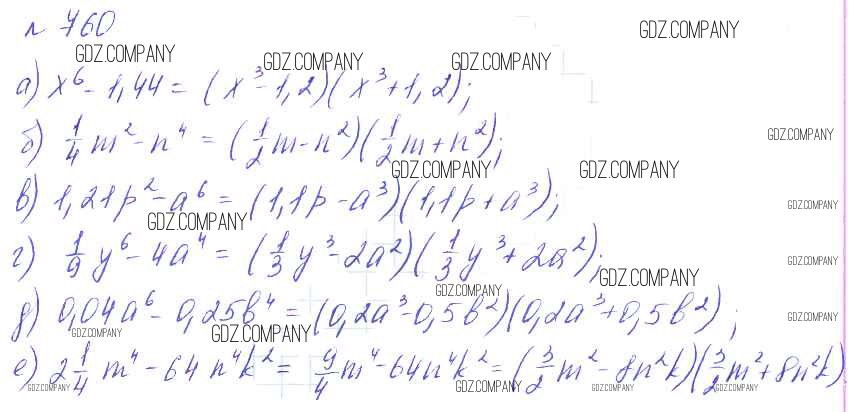 № 760
GDZ.COMPANY
GDZ.COMPANY GDZ.COMPANY GDZ.COMPANY
а) x⁶ - 1,44 = (x³ - 1,2)(x³ + 1,2);
GDZ.COMPANY
б) 1/4 m² - n⁴ = (1/2 m - n²)(1/2 m + n²);
GDZ.COMPANY GDZ.COMPANY
в) 1,21p² - a⁶ = (1,1p - a³)(1,1p + a³);
GDZ.COMPANY
GDZ.COMPANY
г) 1/9 y⁶ - 4a⁴ = (1/3 y³ - 2a²)(1/3 y³ + 2a²);
GDZ.COMPANY
GDZ.COMPANY
GDZ.COMPANY
д) 0,04a⁶ - 0,25b⁴ = (0,2a³ - 0,5b²)(0,2a³ + 0,5b²);
GDZ.COMPANY
GDZ.COMPANY GDZ.COMPANY
е) 2 1/4 m⁴ - 64n⁴k² = 9/4 m⁴ - 64n⁴k² = (3/2 m² - 8n²k)(3/2 m² + 8n²k)
GDZ.COMPANY GDZ.COMPANY GDZ.COMPANY GDZ.COMPANY